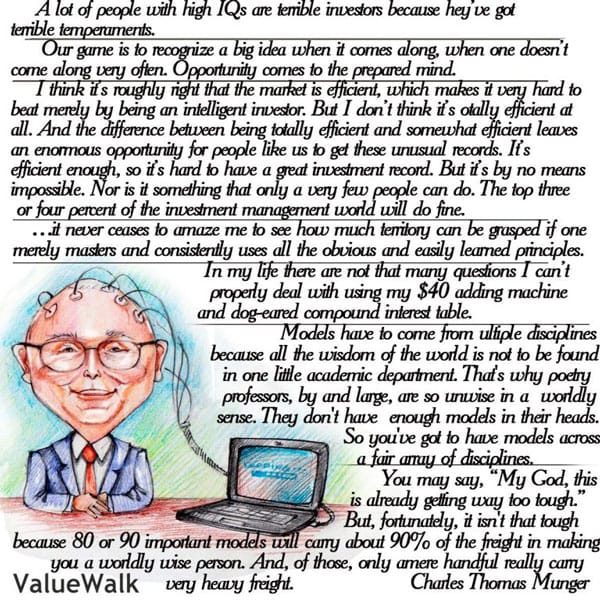 A lot of people with high IQs are terrible investors because hey've got
terrible temperaments.
Our game is to recognize a big idea when it comes along, when one doesn't
come along very often. Opportunity comes to the prepared mind.
I think it's roughly right that the market is efficient, which makes it very hard to
beat merely by being an intelligent investor. But I don't think it's otally efficient at
all. And the difference between being totally efficient and somewhat efficient leaves
an enormous opportunity for people like us to get these unusual records. It's
efficient enough, so it's hard to have a great investment record. But it's by no means
impossible. Nor is it something that only a very few people can do. The top three
or four percent of the investment management world will do fine.
...it never ceases to amaze me to see how much territory can be grasped if one
merely masters and consistently uses all the obvious and easily learned principles.
In my life there are not that many questions I can't
properly deal with using my $40 adding machine
and dog-eared compound interest table.
Models have to come from ultiple disciplines
because all the wisdom of the world is not to be found
in one little academic department. That's why poetry
professors, by and large, are so unwise in a worldly
sense. They don't have enough models in their heads.
So you've got to have models across
a fair array of disciplines.
You may say, "My God, this
is already getting way too tough."
But, fortunately, it isn't that tough
because 80 or 90 important models will carry about 90% of the freight in making
you a worldly wise person. And, of those, only amere handful really carry
very heavy freight.
Charles Thomas Munger
ValueWalk